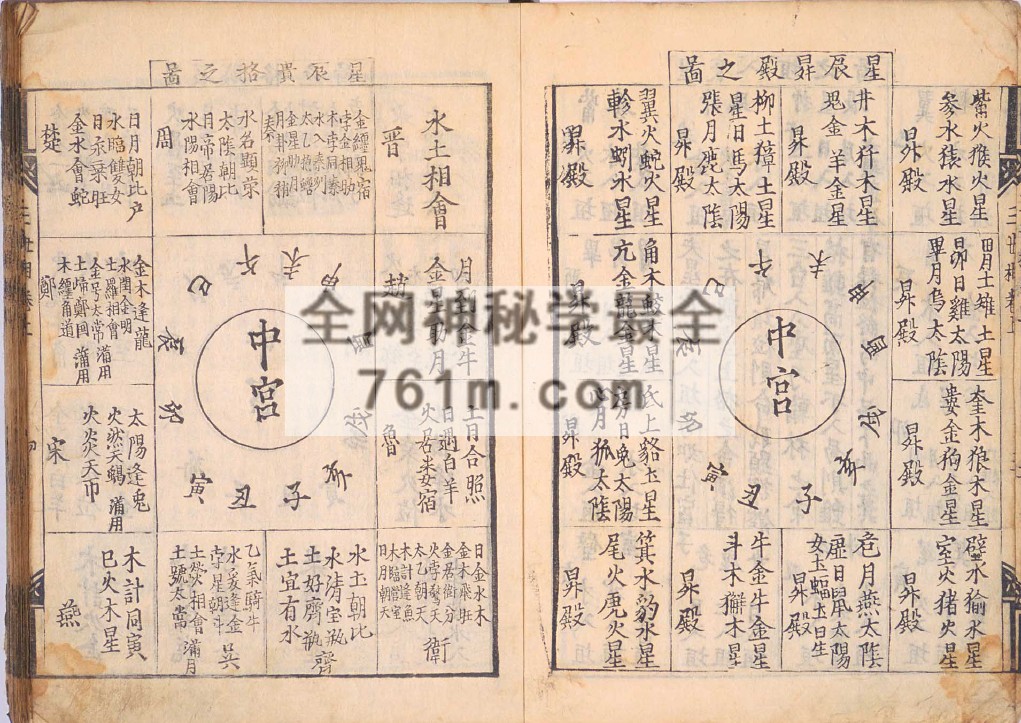 星辰昇殿之啚
觜火猴火星
參水猿水星
昇殿
井木犴木星
鬼金羊金星
昇殿
柳土獐土星
星日馬太陽
張月鹿太陰
昇殿
翼火蛇火星
軫水蚓水星
昇殿
胃土雉土星
昴日雞太陽
畢月烏太陰
昇殿
角木蛟木星
亢金龍金星
昇殿
奎木狼木星
婁金狗金星
昇殿
氐土貉土星
房日兔太陽
心月狐太陰
昇殿
壁水㺄水星
室火猪火星
昇殿
危月燕太陰
虛日鼠太陽
女土蝠土星
昇殿
牛金牛金星
斗木獬木星
昇殿
箕水豹水星
尾火虎火星
昇殿
中宮
午
未
申
酉
戌
亥
子
丑
寅
卯
辰
巳
星辰貴格之啚
水土相會
晉
金纏鬼宿
孛金相助
秦
水名顯榮
太陰朝比
月帝居陽
水陽相會
周
日月朝比戶
水臨雙女
金水會蛇
楚
月到金牛
金星助月
趙
金木逢龍
土羅相會
土歸鄭国
蒲用
木纏角道
鄭
土月合照
日遇白羊
火居娄宿
魯
太陽逢兎
火然天鷄
蒲用
火炎天市
宋
日金水木
金木乘旺
金居衛分
火孛鷔天
太乙朝天
木計逢魚
木臨臨室
日月朝天
衛
水土朝比
水清宝瓶
土好齊瓶
土宜有水
齊
乙氣騎牛
水裊逢金
孛星朝斗
土熒相會
土號太常
蒲月
吳
木計同寅
巳火木星
燕
中宮
午
未
申
酉
戌
亥
子
丑
寅
卯
辰
巳
全网神秘学最全
761m.com